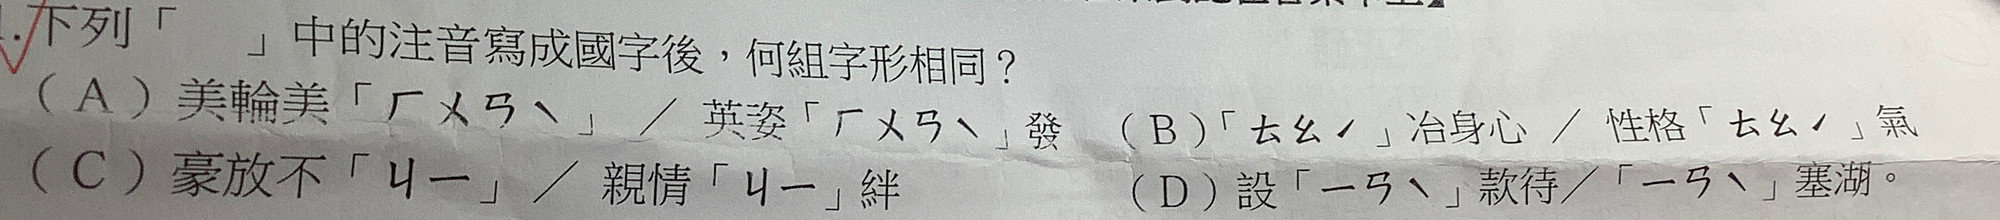 .下列「　　」中的注音寫成國字後，何組字形相同？
（A）美輪美「ㄏㄨㄢˋ」／英姿「ㄏㄨㄢˋ」發　（B）「ㄊㄠˊ」冶身心／性格「ㄊㄠˊ」氣
（C）豪放不「ㄐㄧ」／親情「ㄐㄧ」絆　（D）設「ㄧㄢˋ」款待／「ㄧㄢˋ」塞湖。